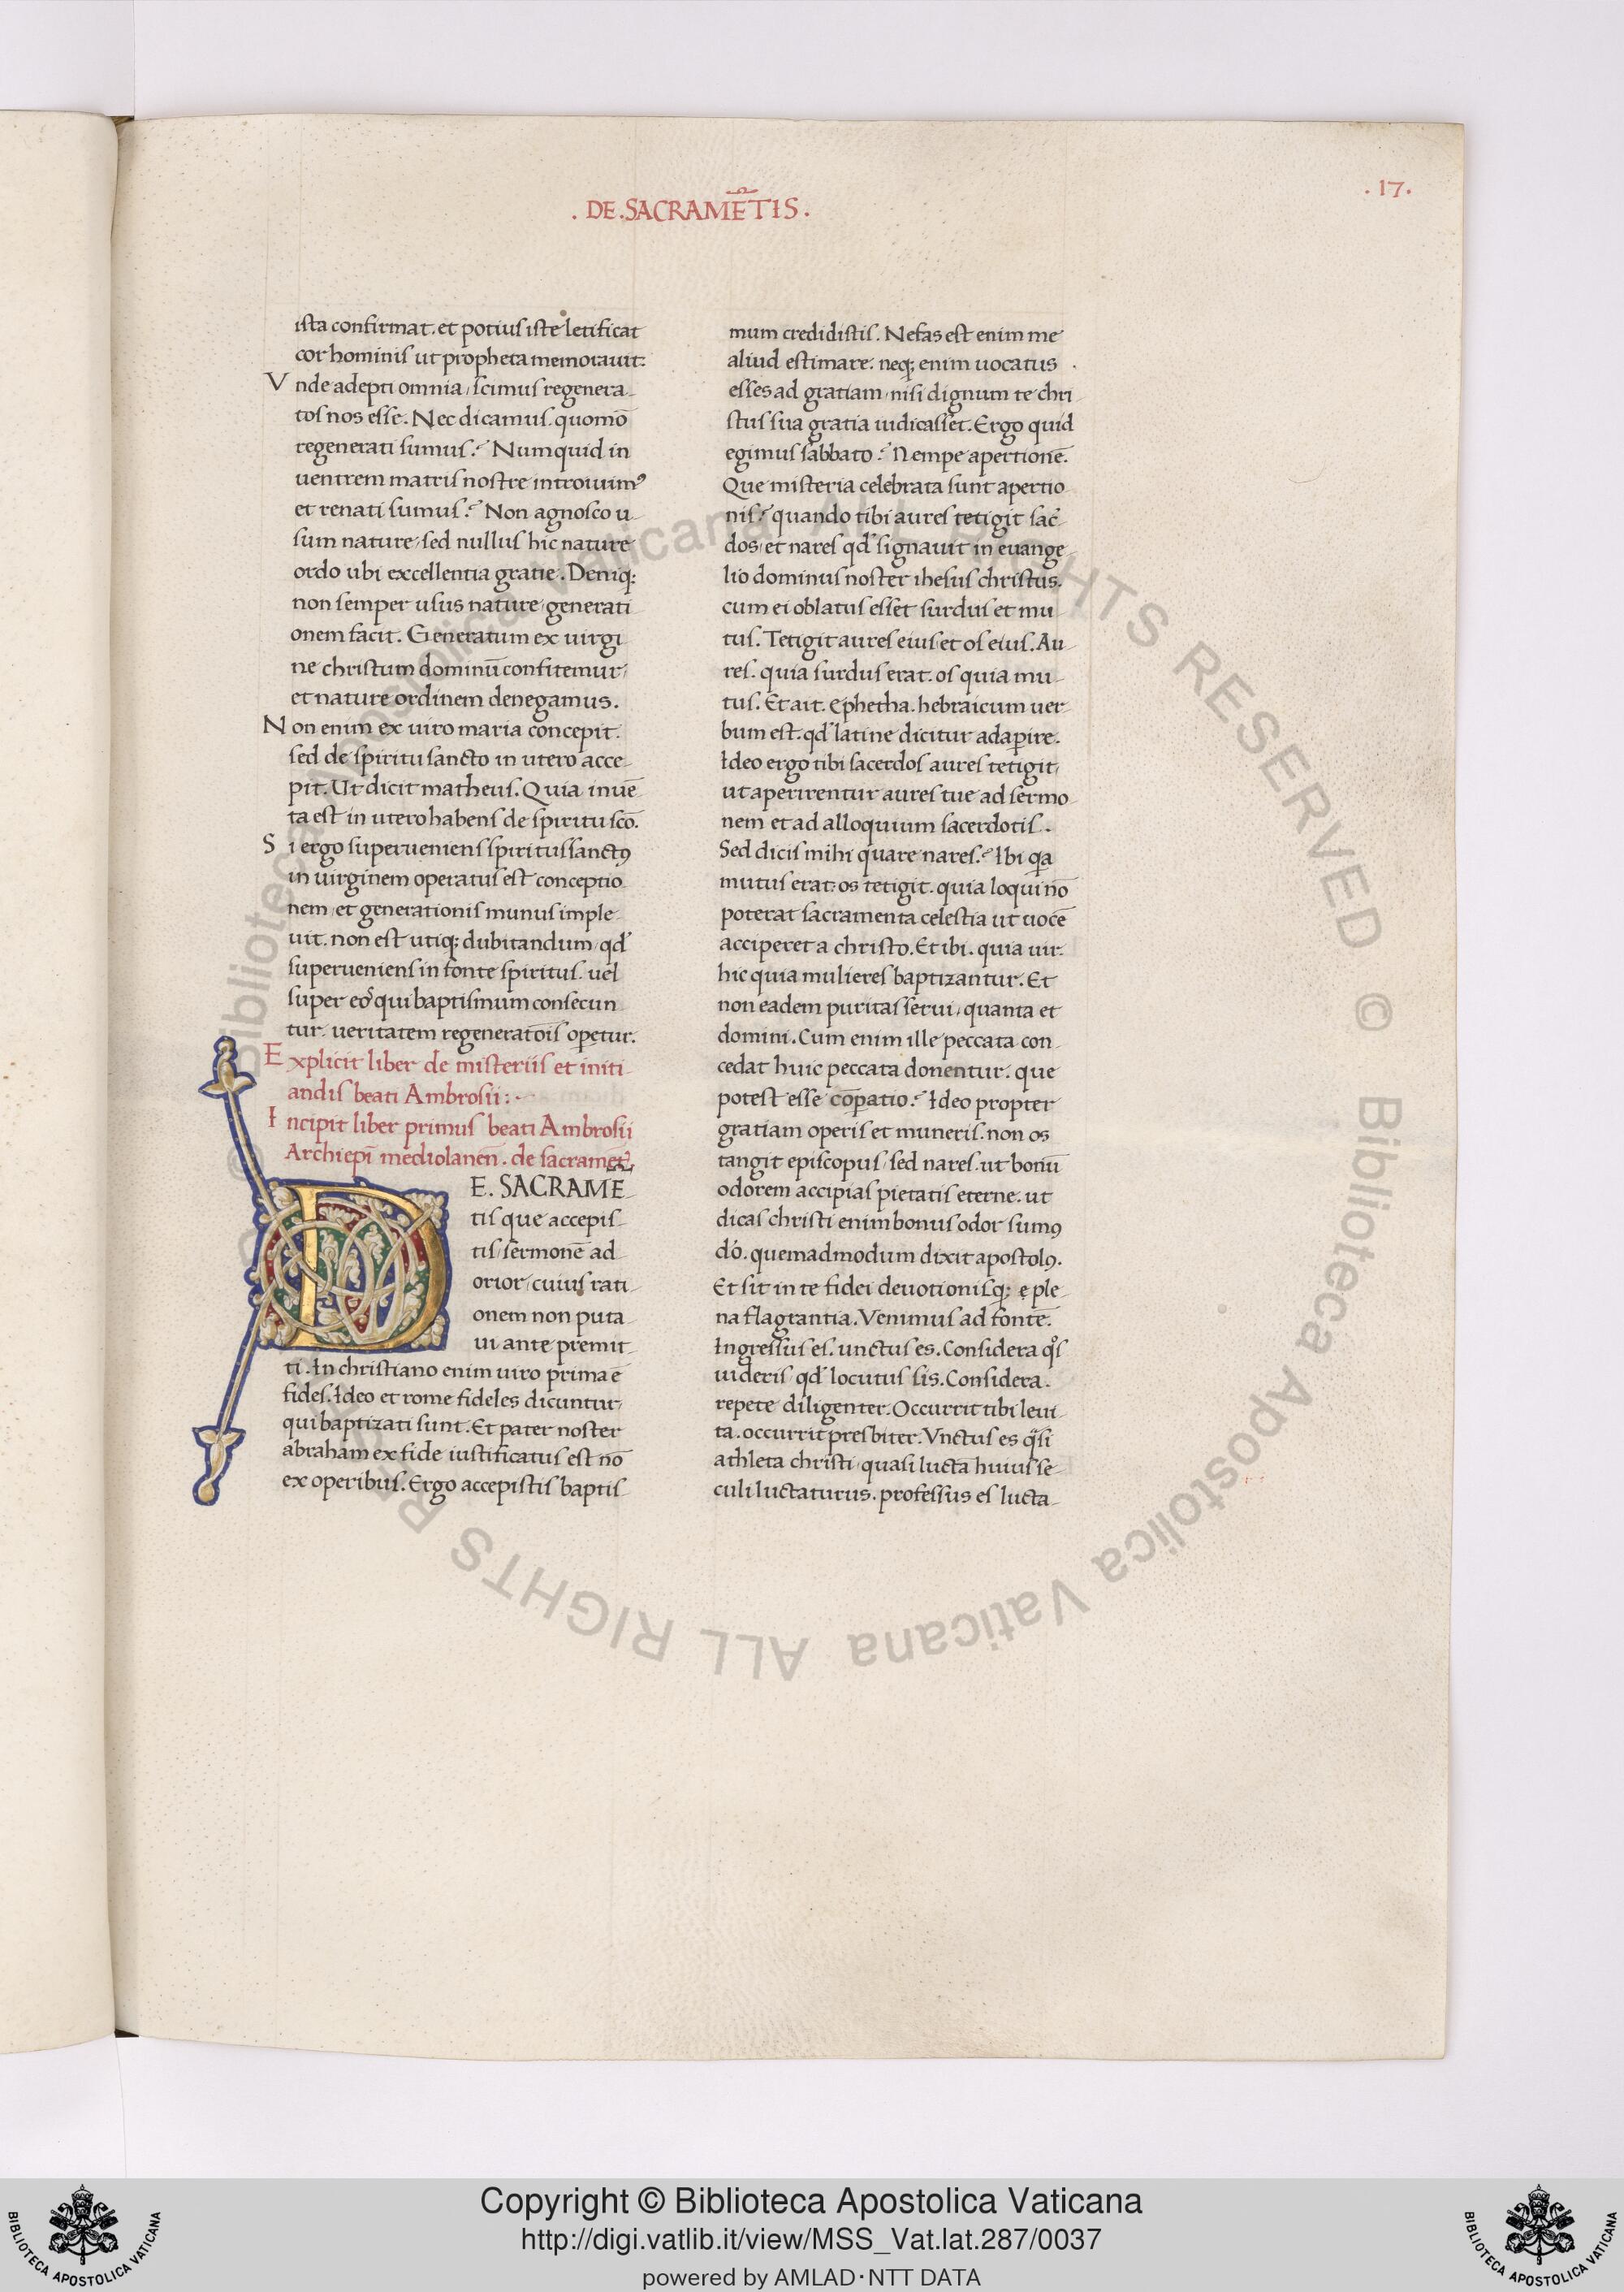 . DE . SACRAMẼTIS .
. 17 .
ista confirmat. et potius iste letificat
cor hominis ut propheta memorauit:
V nde adepti omnia, scimus regenera-
tos nos esse. Nec dicamus. quomō
regenerati sumus? Numquid in
uentrem matris nostre introiuimꝰ
et renati sumus? Non agnosco u-
sum nature, sed nullus hic nature
ordo ubi excellentia gratie. Deniq;
non semper usus nature, generati-
onem facit. Generatum ex uirgi
ne christum dominū confitemur,
et nature ordinem denegamus.
N on enim ex uiro maria concepit.
sed de spiritu sancto in utero acce-
pit. Ut dicit matheus. Quia inuē-
ta est in utero habens de spiritu scō.
S i ergo superueniens spiritus sanctꝰ
in uirginem operatus est conceptio-
nem, et generationis munus imple-
uit. non est utiq; dubitandum, qd'
superueniens in fonte spiritus. uel
super eos qui baptismum consecun-
tur. ueritatem regeneratōis operetur.
E xplicit liber de misteriis et initi-
andis beati Ambrosii : .
I ncipit liber primus beati Ambrosii
Archiepī mediolanen̄. de sacramet̄.
DE. SACRAMĒ-
tis que accepis-
tis, sermonē ad-
orior, cuius rati-
onem non puta-
ui ante premit-
ti. In christiano enim uiro prima ē
fides. Ideo et rome fideles dicuntur,
qui baptizati sunt. Et pater noster
abraham ex fide iustificatus est nō
ex operibus. Ergo accepistis baptis-
mum credidistis. Nefas est enim me
aliud estimare. neq; enim uocatus
esses ad gratiam, nisi dignum te chri-
stus sua gratia iudicasset. Ergo quid
egimus sabbato? Nempe apertionē.
Que misteria celebrata sunt apertio
nis? quando tibi aures tetigit sac̄-
dos, et nares qd' signauit in euange-
lio dominus noster ihesus christus.
cum ei oblatus esset surdus et mu-
tus. Tetigit aures eius et os eius. Au-
res. quia surdus erat. os quia mu-
tus. Et ait. Ephetha. hebraicum uer
bum est. qd' latine dicitur adaꝑire.
Ideo ergo tibi sacerdos aures tetigit,
ut aperirentur aures tue ad sermo-
nem et ad alloquium sacerdotis.
Sed dicis mihi quare nares? Ibi qa
mutus erat: os tetigit. quia loqui nō
poterat sacramenta celestia ut uocē
acciperet a christo. Et ibi. quia uir.
hic quia mulieres baptizantur. Et
non eadem puritas serui, quanta et
domini. Cum enim ille peccata con-
cedat huic peccata donentur. que
potest esse cōꝑatio? Ideo propter
gratiam operis et muneris. non os
tangit episcopus, sed nares. ut bonū
odorem accipias pietatis eterne. ut
dicas christi enim bonus odor sumꝰ
dō. quemadmodum dixit apostolꝰ.
Et sit in te fidei deuotionisq; e ple-
na flagrantia. Venimus ad fontē.
Ingressus es. unctus es. Considera qͦs
uideris qd' locutus sis. Considera.
repete diligenter. Occurrit tibi leui-
ta. occurrit presbiter. Vnctus es qͣsi
athleta christi, quasi lucta huius se-
culi luctaturus. professus es lucta-
© Biblioteca Apostolica Vaticana ALL RIGHTS RESERVED © Biblioteca Apostolica Vaticana ALL RIGHTS R
Copyright © Biblioteca Apostolica Vaticana
http://digi.vatlib.it/view/MSS_Vat.lat.287/0037
powered by AMLAD·NTT DATA
BIBLIOTECA APOSTOLICA VATICANA
BIBLIOTECA APOSTOLICA VATICANA